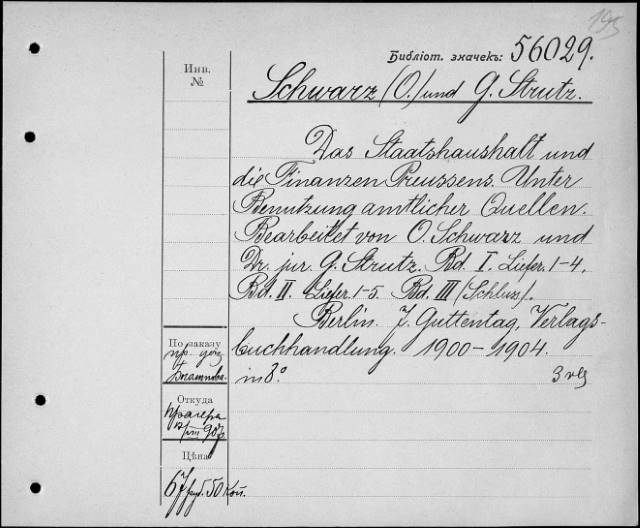 195
Библіот. значекъ: 56029.
Инв.
№
Schwarz (O.) und G. Strutz.
Das Staatshaushalt und
die Finanzen Preussens. Unter
Benutzung amtlicher Quellen.
Bearbeitet von O. Schwarz und
Dr. jur. G. Strutz. Bd. I. Liefer. 1-4.
Bd. II. Liefer. 1-5. Bd. III (Schluss).
Berlin. J. Guttentag, Verlags-
buchhandlung. 1900-1904.
in 8° 3 vls
По заказу
пр.
Откуда
907
Цѣна
67 руб. 50 коп.